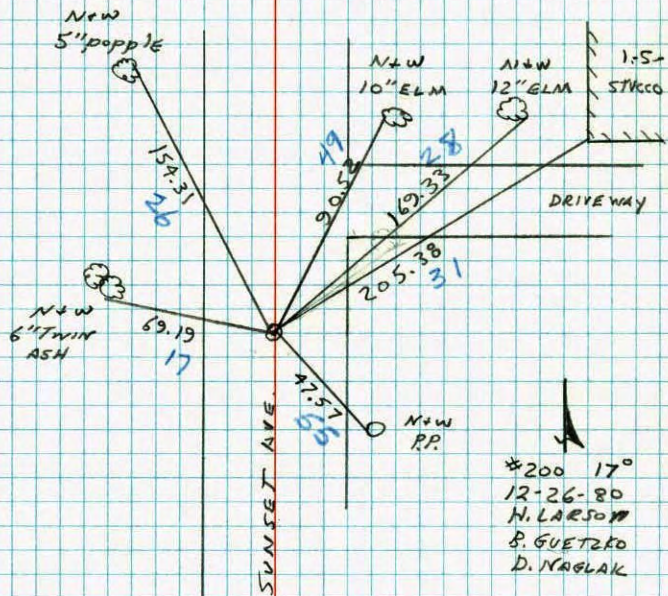 N+W
5" POPPLE
N+W
10" ELM
N+W
12" ELM
1.5+
STUCCO
154.31
26
49
90.52
28
169.33
DRIVEWAY
205.38
31
N+W
6" TWIN
ASH
69.19
17
47.57
55
N+W
P.P.
SUNSET AVE.
#200 17°
12-26-80
H. LARSON
B. GUETZKO
D. NAGLAK